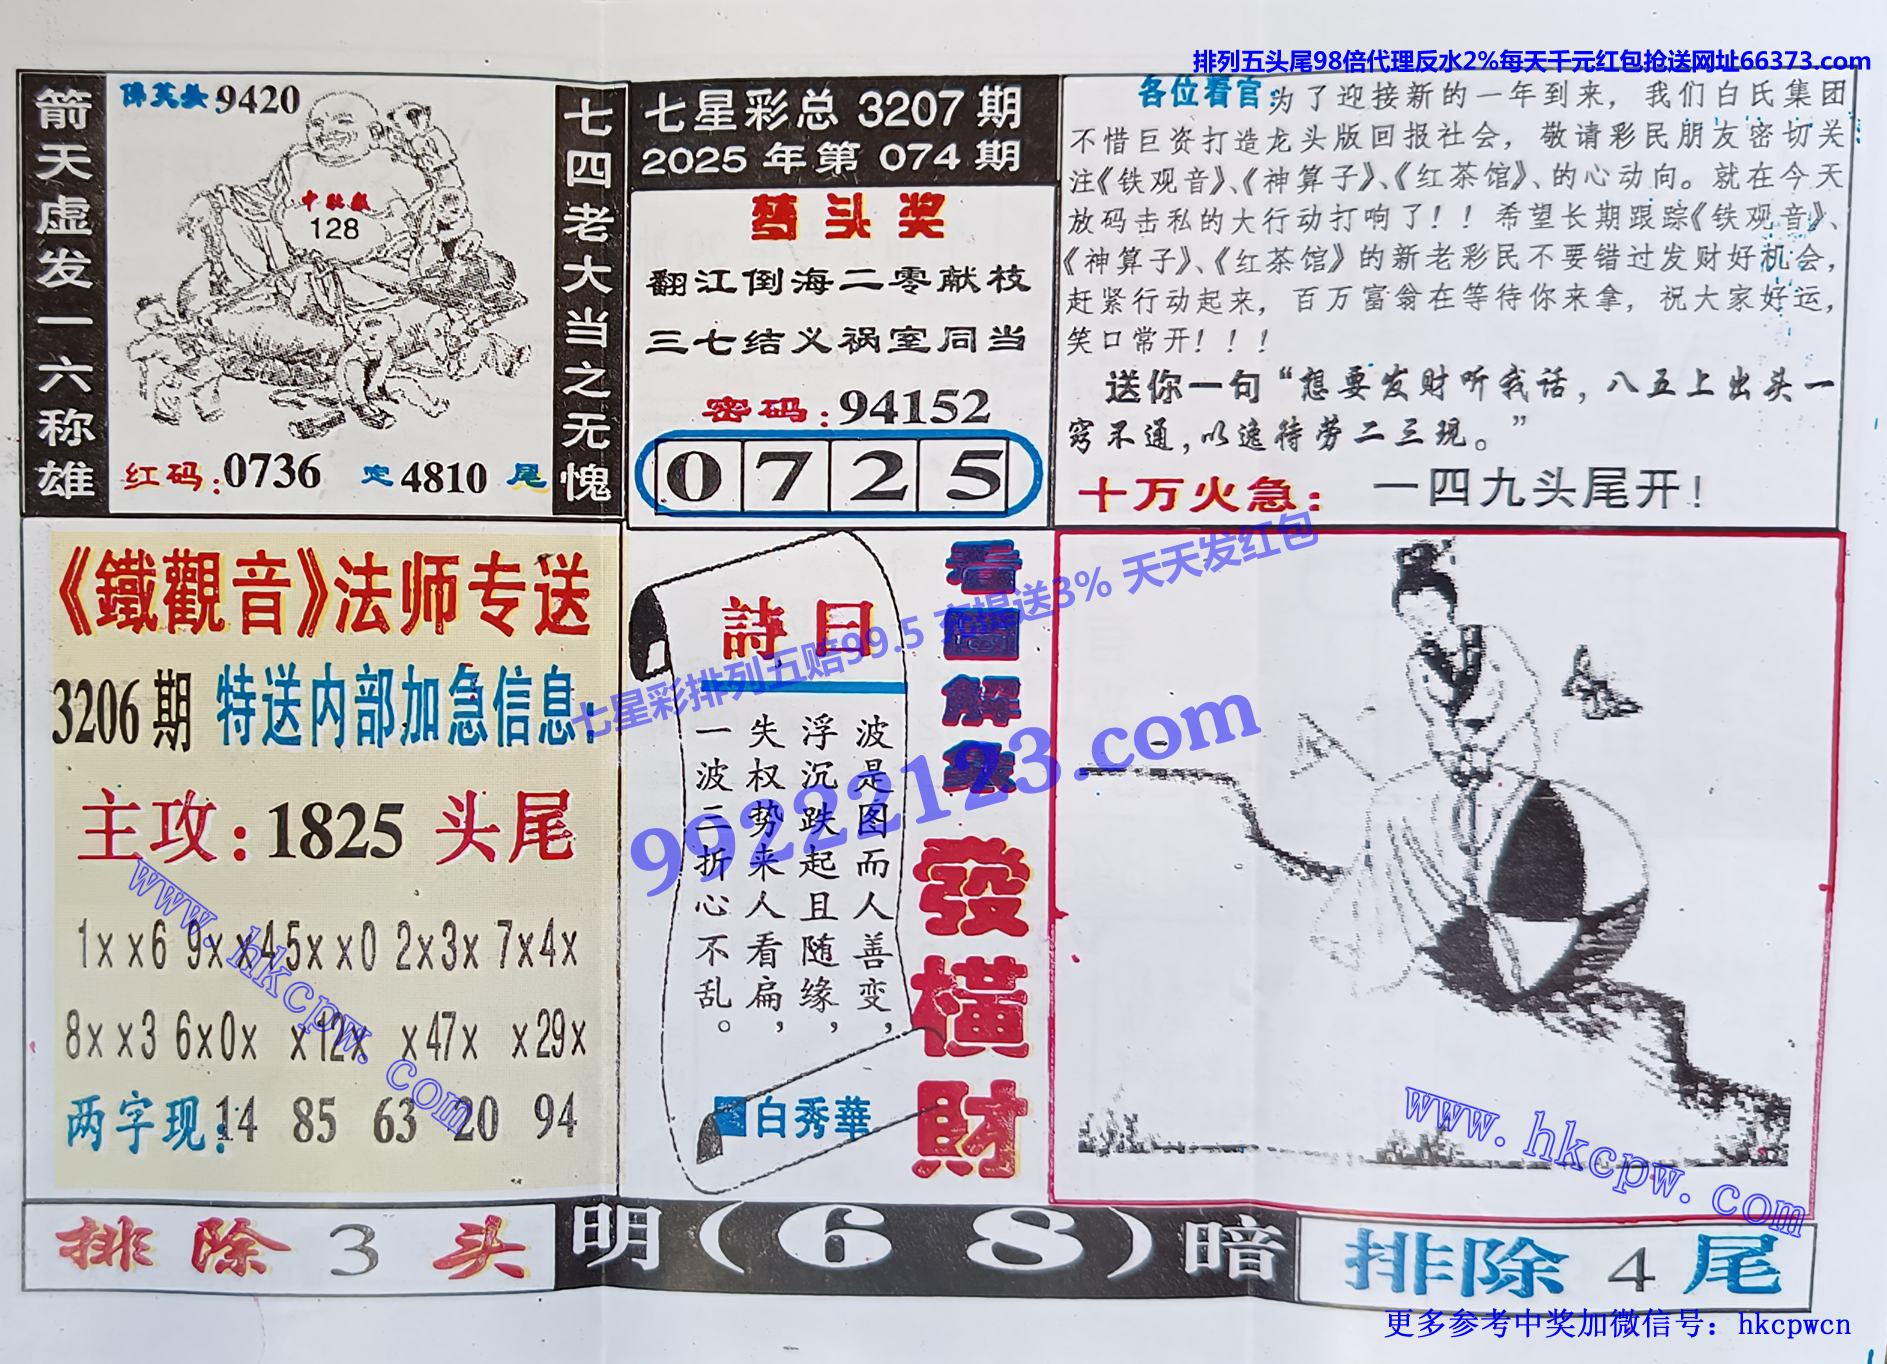 排列五头尾98倍代理反水2%每天千元红包抢送网址66373.com
箭天虚发一六称雄
9420
中肚数
128
红码:0736 定4810尾
七四老大当之无愧
七星彩总 3207 期
2025 年第 074 期
梦头奖
翻江倒海二零献枝
三七结义祸室同当
密码:94152
0 7 2 5
各位看官:为了迎接新的一年到来，我们白氏集团
不惜巨资打造龙头版回报社会，敬请彩民朋友密切关
注《铁观音》、《神算子》、《红茶馆》、的心动向。就在今天
放码击私的大行动打响了！！希望长期跟踪《铁观音》、
《神算子》、《红茶馆》的新老彩民不要错过发财好机会，
赶紧行动起来，百万富翁在等待你来拿，祝大家好运，
笑口常开！！！
送你一句“想要发财听我话，八五上出头一
窍不通，以逸待劳二三现。”
十万火急：一四九头尾开！
《鐵觀音》法师专送
3206 期 特送内部加急信息:
主攻:1825 头尾
1xx6 9xx4 5xx0 2x3x 7x4x
8xx3 6x0x x12x x47x x29x
两字现:14 85 63 20 94
詩曰
波是图而人善变，
浮沉跌起且随缘，
失权势来人看扁，
一波三折心不乱。
圖白秀華
看圖解象
發橫財
七星彩排列五赔99.5 充提送3% 天天发红包
99222123.com
www.hkcpw.com
www.hkcpw.com
排除 3 头
明(68)暗
排除 4 尾
更多参考中奖加微信号：hkcpwcn